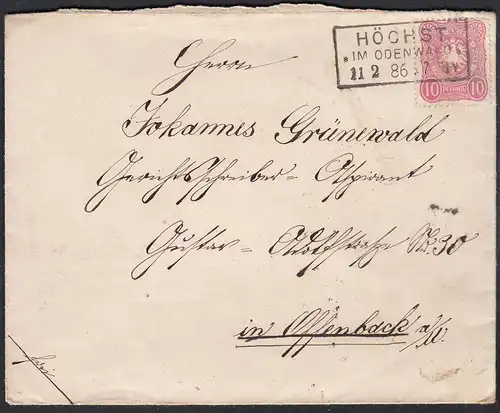 HÖCHST
* IM ODENWALD
11 2 86
10 PFENNIG 10
Herrn
Johannes Grünewald
Gerichtsschreiber-Aspirant
Gustav-Adolfstraße No. 30
in Offenbach a/M.
frei